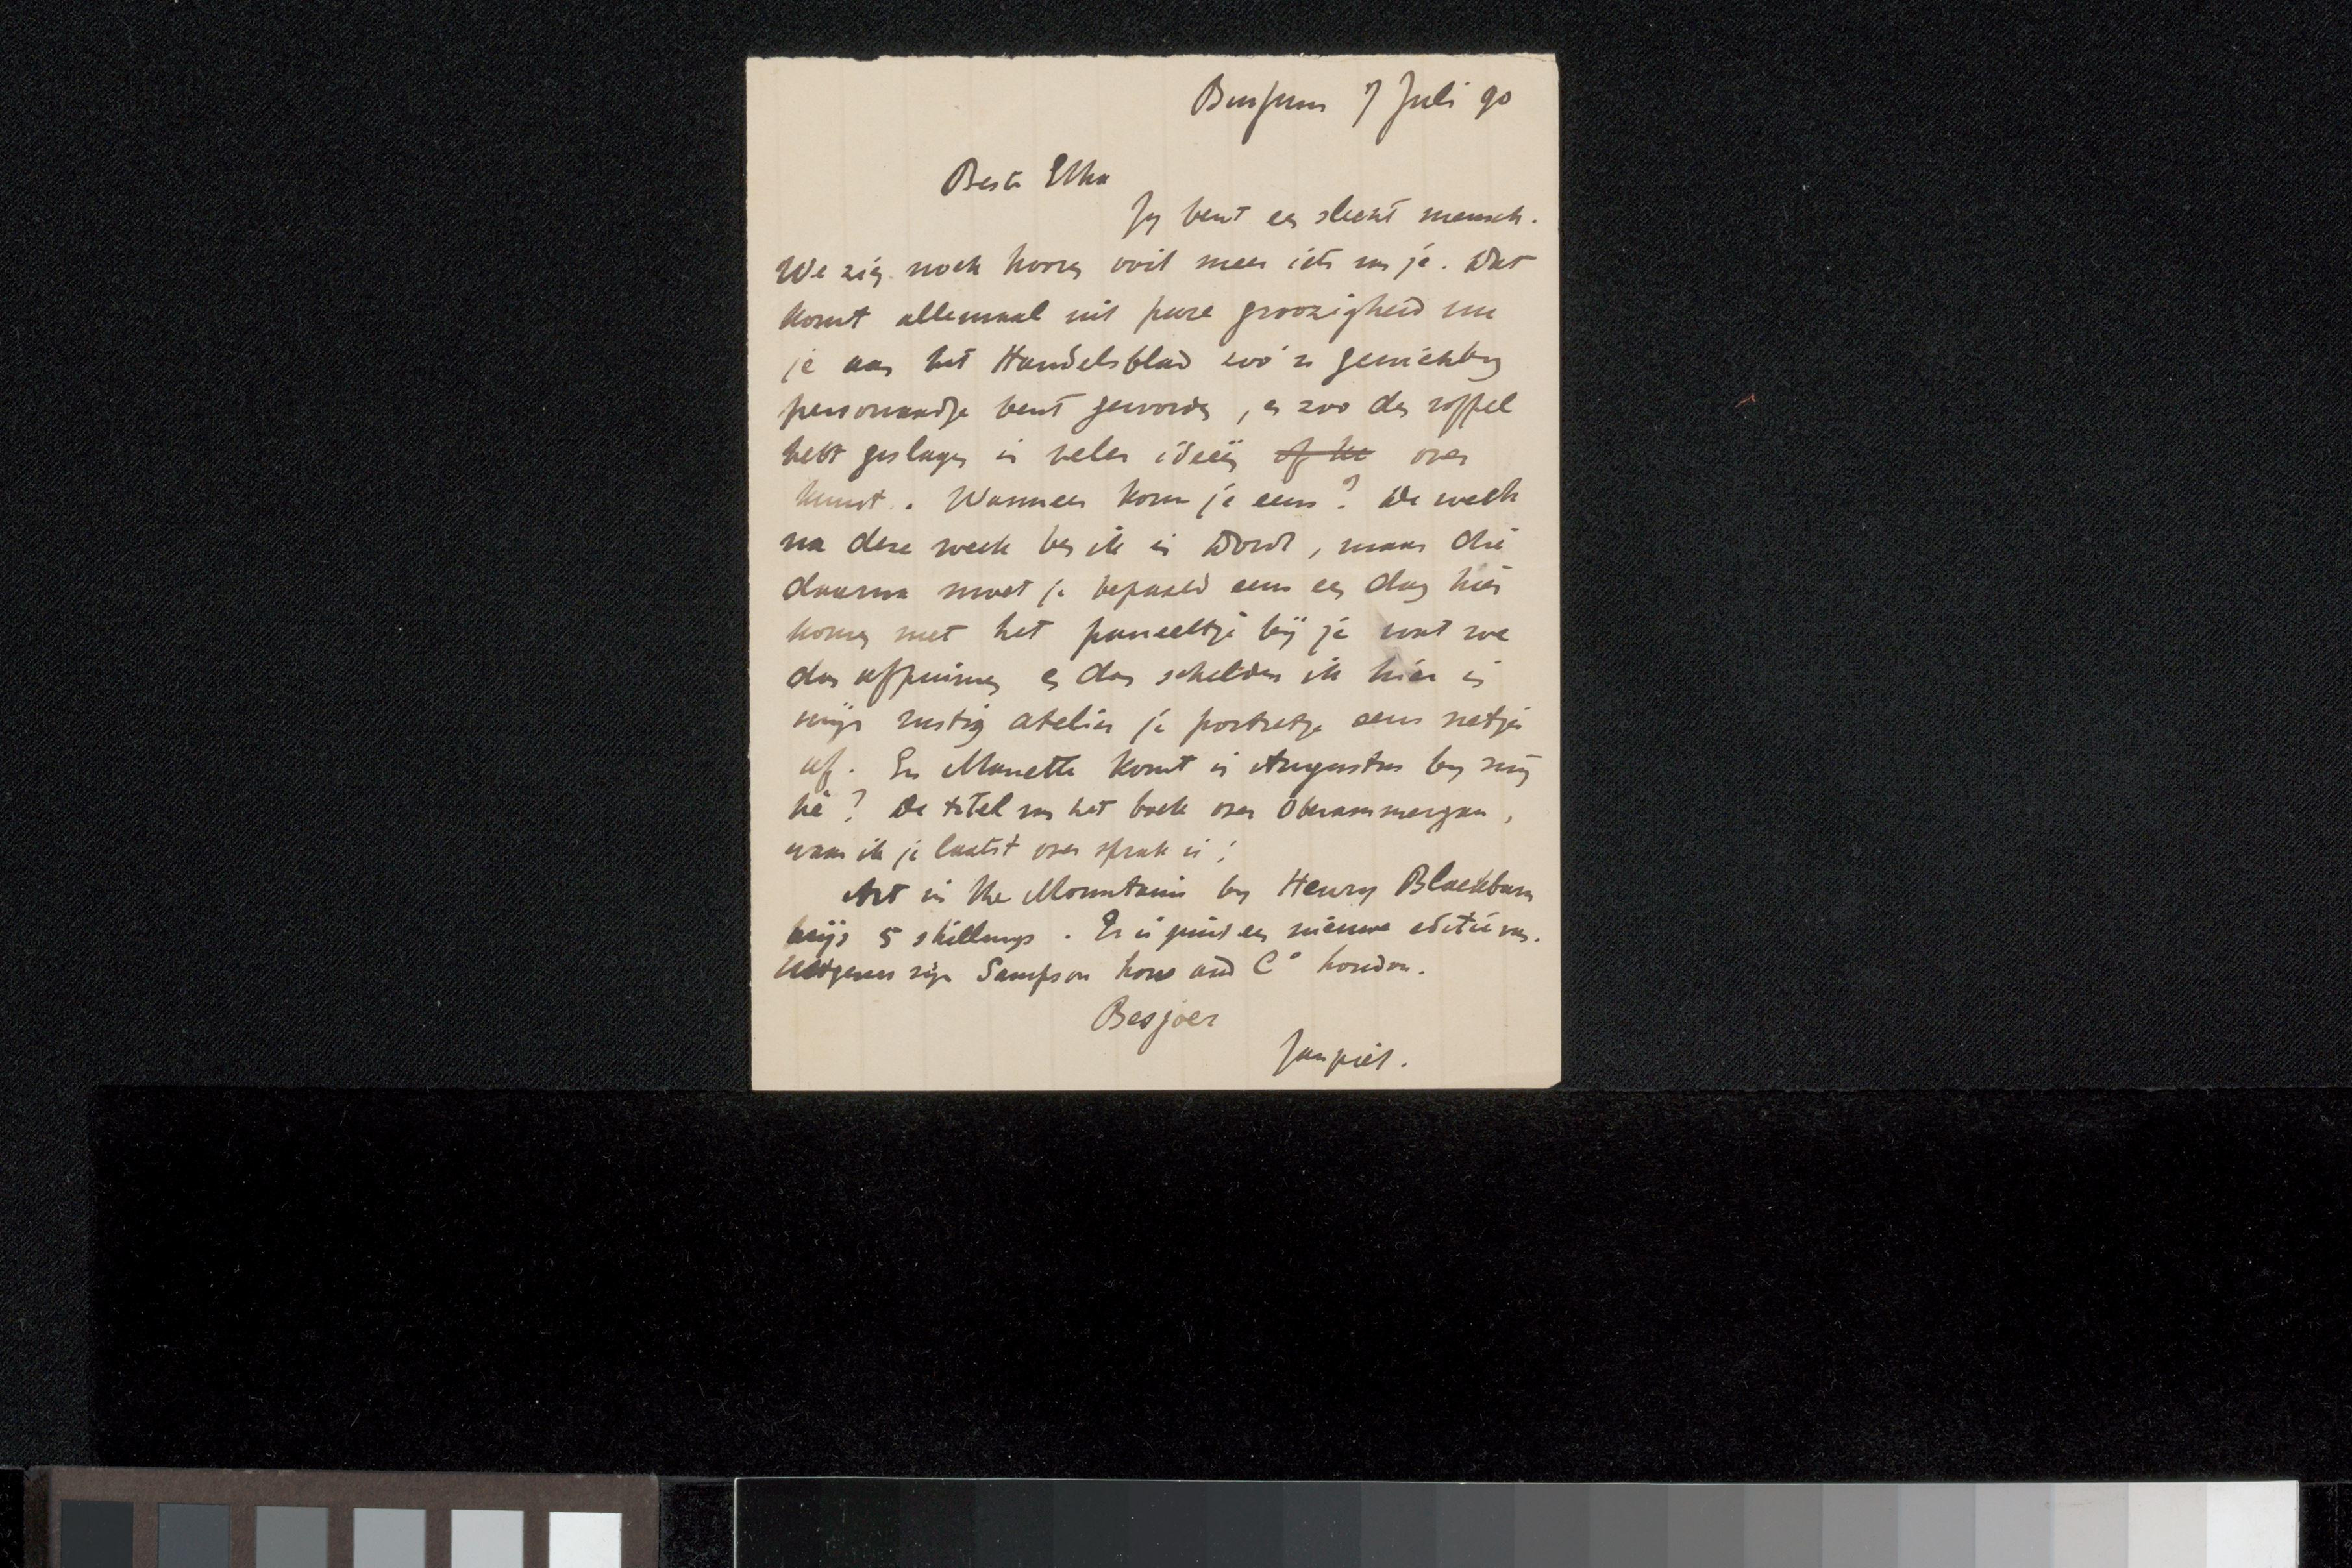 Bussum 7 Juli 90
Beste Etha
Jy bent een slecht mensch.
We zien noch hooren ooit meer iets van je. Dat
komt allemaal uit pure groozigheid nu
je aan het Handelsblad zoo'n gewichtig
personaadje bent geworden, en zoo den roffel
hebt geslagen in veler ideeën of de over
kunst. Wanneer kom je eens? De week
na deze week ben ik in Dord, maar die
daarna moet je bepaald eens een dag hier
komen met het paneeltje bij je wat we
dan afpuimen en dan schilder ik hier in
mijn rustig atelier je portretje eens netjes
af. En Manette komt in Augustus by mij
hè? De titel van het boek over Oberammergau,
waar ik je laatst over sprak is:
Art in the Mountains by Henry Blackburn
prijs 5 shillings. Er is juist een nieuwe editie van.
Uitgevers zijn Sampson Low and Co London.
Besjoer
Janpiet.